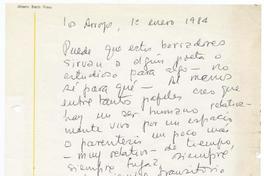 Los Arroyo, 1º enero 1984
Puede que estos borradores
sirvan a algún poeta o
estudioso para algo — no
sé para qué — Al menos
entre tantos papeles creo que
hay un ser humano relativa-
mente vivo por un espacio
o paréntesis un poco más
— muy relativo — de tiempo,
siempre fugaz, siempre
transitorio